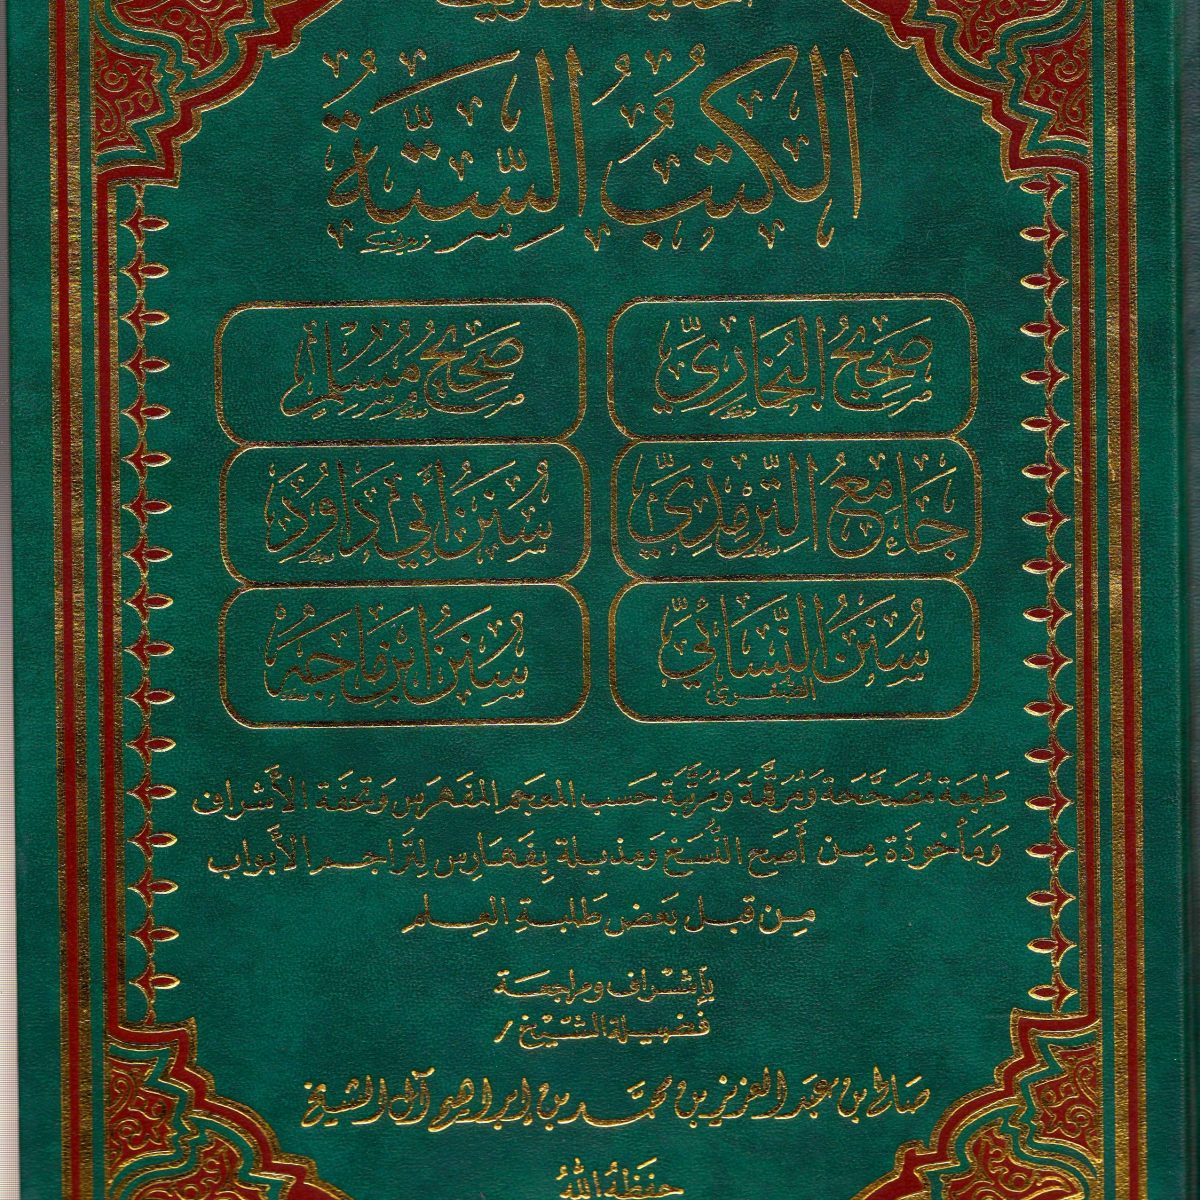 الحديث الشريف
الكُتُبُ السِّتَّةُ
صَحِيحُ البُخَارِيِّ
صَحِيحُ مُسْلِم
جَامِعُ التِّرمِذِيِّ
سُنَنُ أَبِي دَاوُدَ
سُنَنُ النَّسَائِيِّ
الصغرى
سُنَنُ ابْنِ مَاجَهْ
طَبعَة مُصَحَّحَة وَمُرَقَّمَة وَمُرَتَّبَة حَسَب المعجم المفهَرس وَتحفَة الأشرَاف
وَمَأخوذَة مِن أَصَح النُّسَخ وَمذيلة بِفَهَارِس لِتَراجم الأَبواب
مِن قبل بَعض طَلبةِ العِلم
بإشْرَاف ومراجعَة
فضيلة الشيْخ /
صَالح بن عَبد العزيز بن محمَّد بن إبراهيم آل الشيخ
حفظَهُ اللهُ